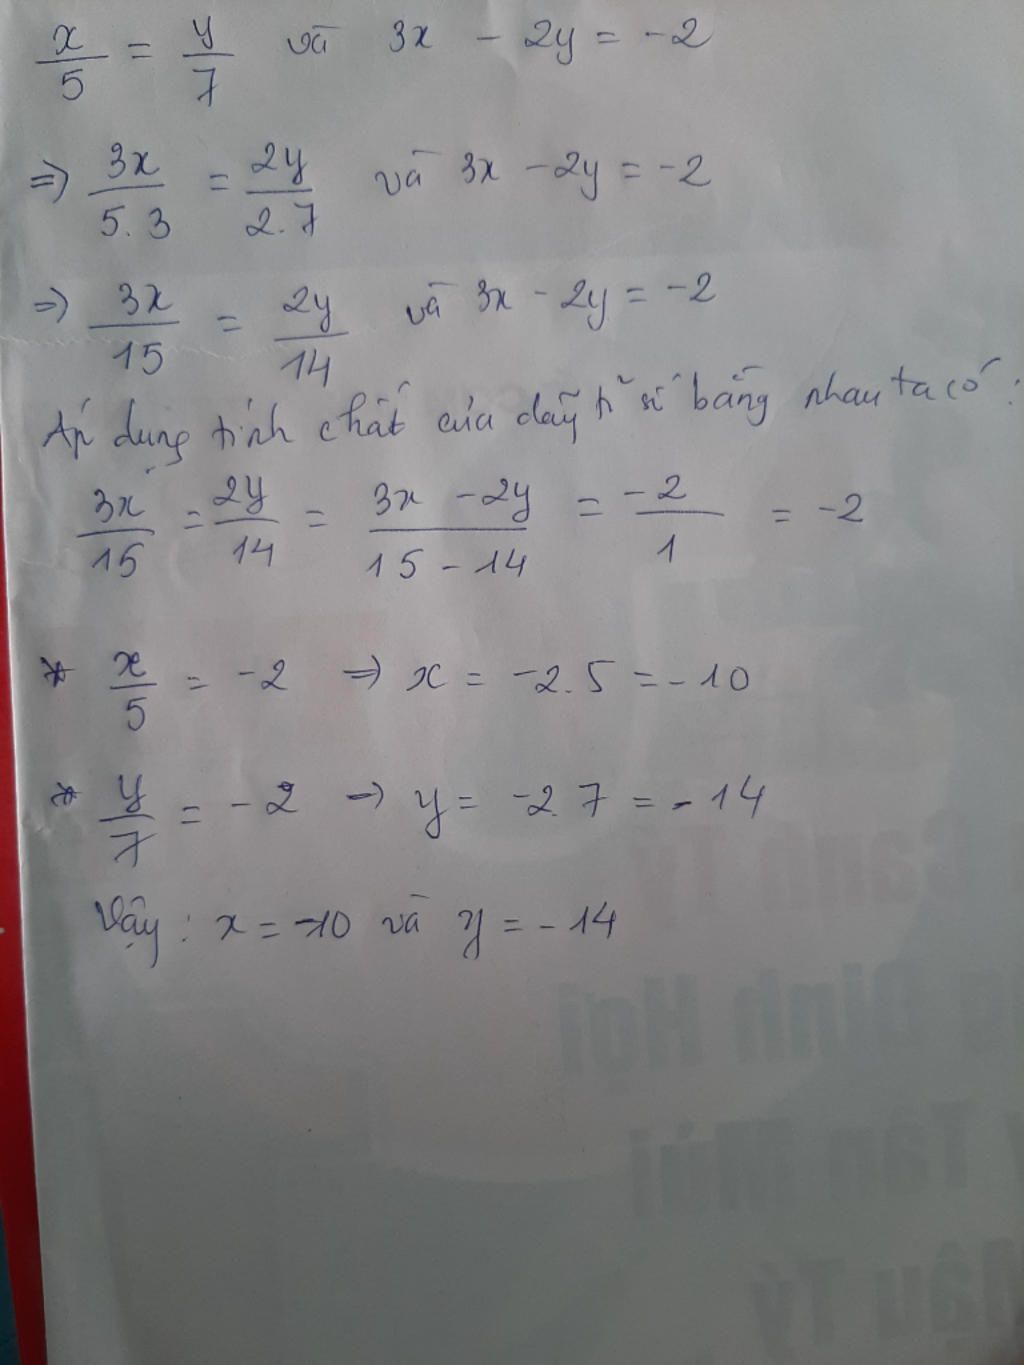 x/5 = y/7 và 3x - 2y = -2
=> 3x/5.3 = 2y/2.7 và 3x - 2y = -2
=> 3x/15 = 2y/14 và 3x - 2y = -2
Áp dụng tính chất của dãy tỉ số bằng nhau ta có:
3x/15 = 2y/14 = 3x - 2y/15 - 14 = -2/1 = -2
* x/5 = -2 => x = -2.5 = -10
* y/7 = -2 => y = -2.7 = -14
Vậy : x = -10 và y = -14